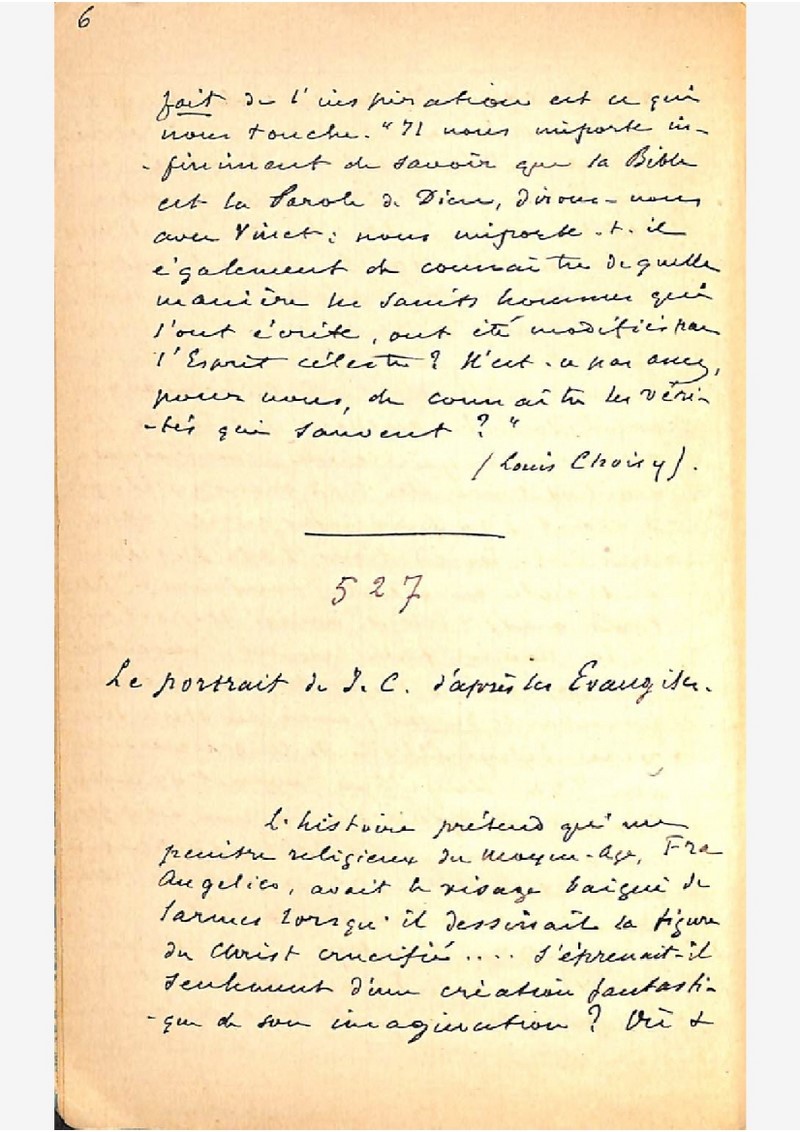 6
fait de l'inspiration est ce qui
nous touche. "Il nous importe in-
-finiment de savoir que la Bible
est la Parole de Dieu, dirons-nous
avec Vinet; nous importe-t-il
également de connaître de quelle
manière les saints hommes qui
l'ont écrite, ont été modifiés par
l'Esprit céleste? N'est-ce pas assez,
pour nous, de connaître les véri-
-tés qui sauvent?"
(Louis Choisy).
527
Le portrait de J. C. d'après les Evangiles.
L'histoire prétend qu'un
peintre religieux du Moyen-Age, Fra
Angelico, avait le visage baigné de
larmes lorsqu'il dessinait la figure
du Christ crucifié.... S'éprenait-il
seulement d'une création fantasti-
-que de son imagination?